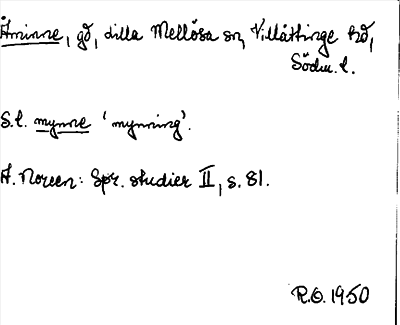 Åminne, gd, Lilla Mellösa sn, Villåttinge hd,
Södm. l.
S.l. mynne 'mynning'.
A. Noreen: Spr. studier II, s. 81.
R.O. 1950